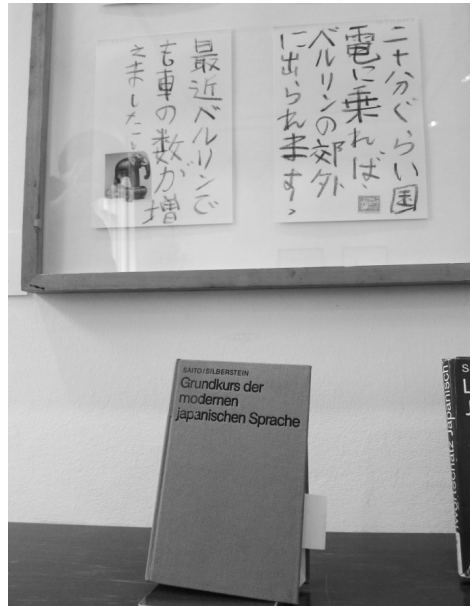 二十分ぐらい国
電に乗れば、
ベルリンの郊外
に出られます。
最近ベルリンで
も車の数が増
えました。
SAITO/SILBERSTEIN
Grundkurs der
modernen
japanischen Sprache
Japanisch